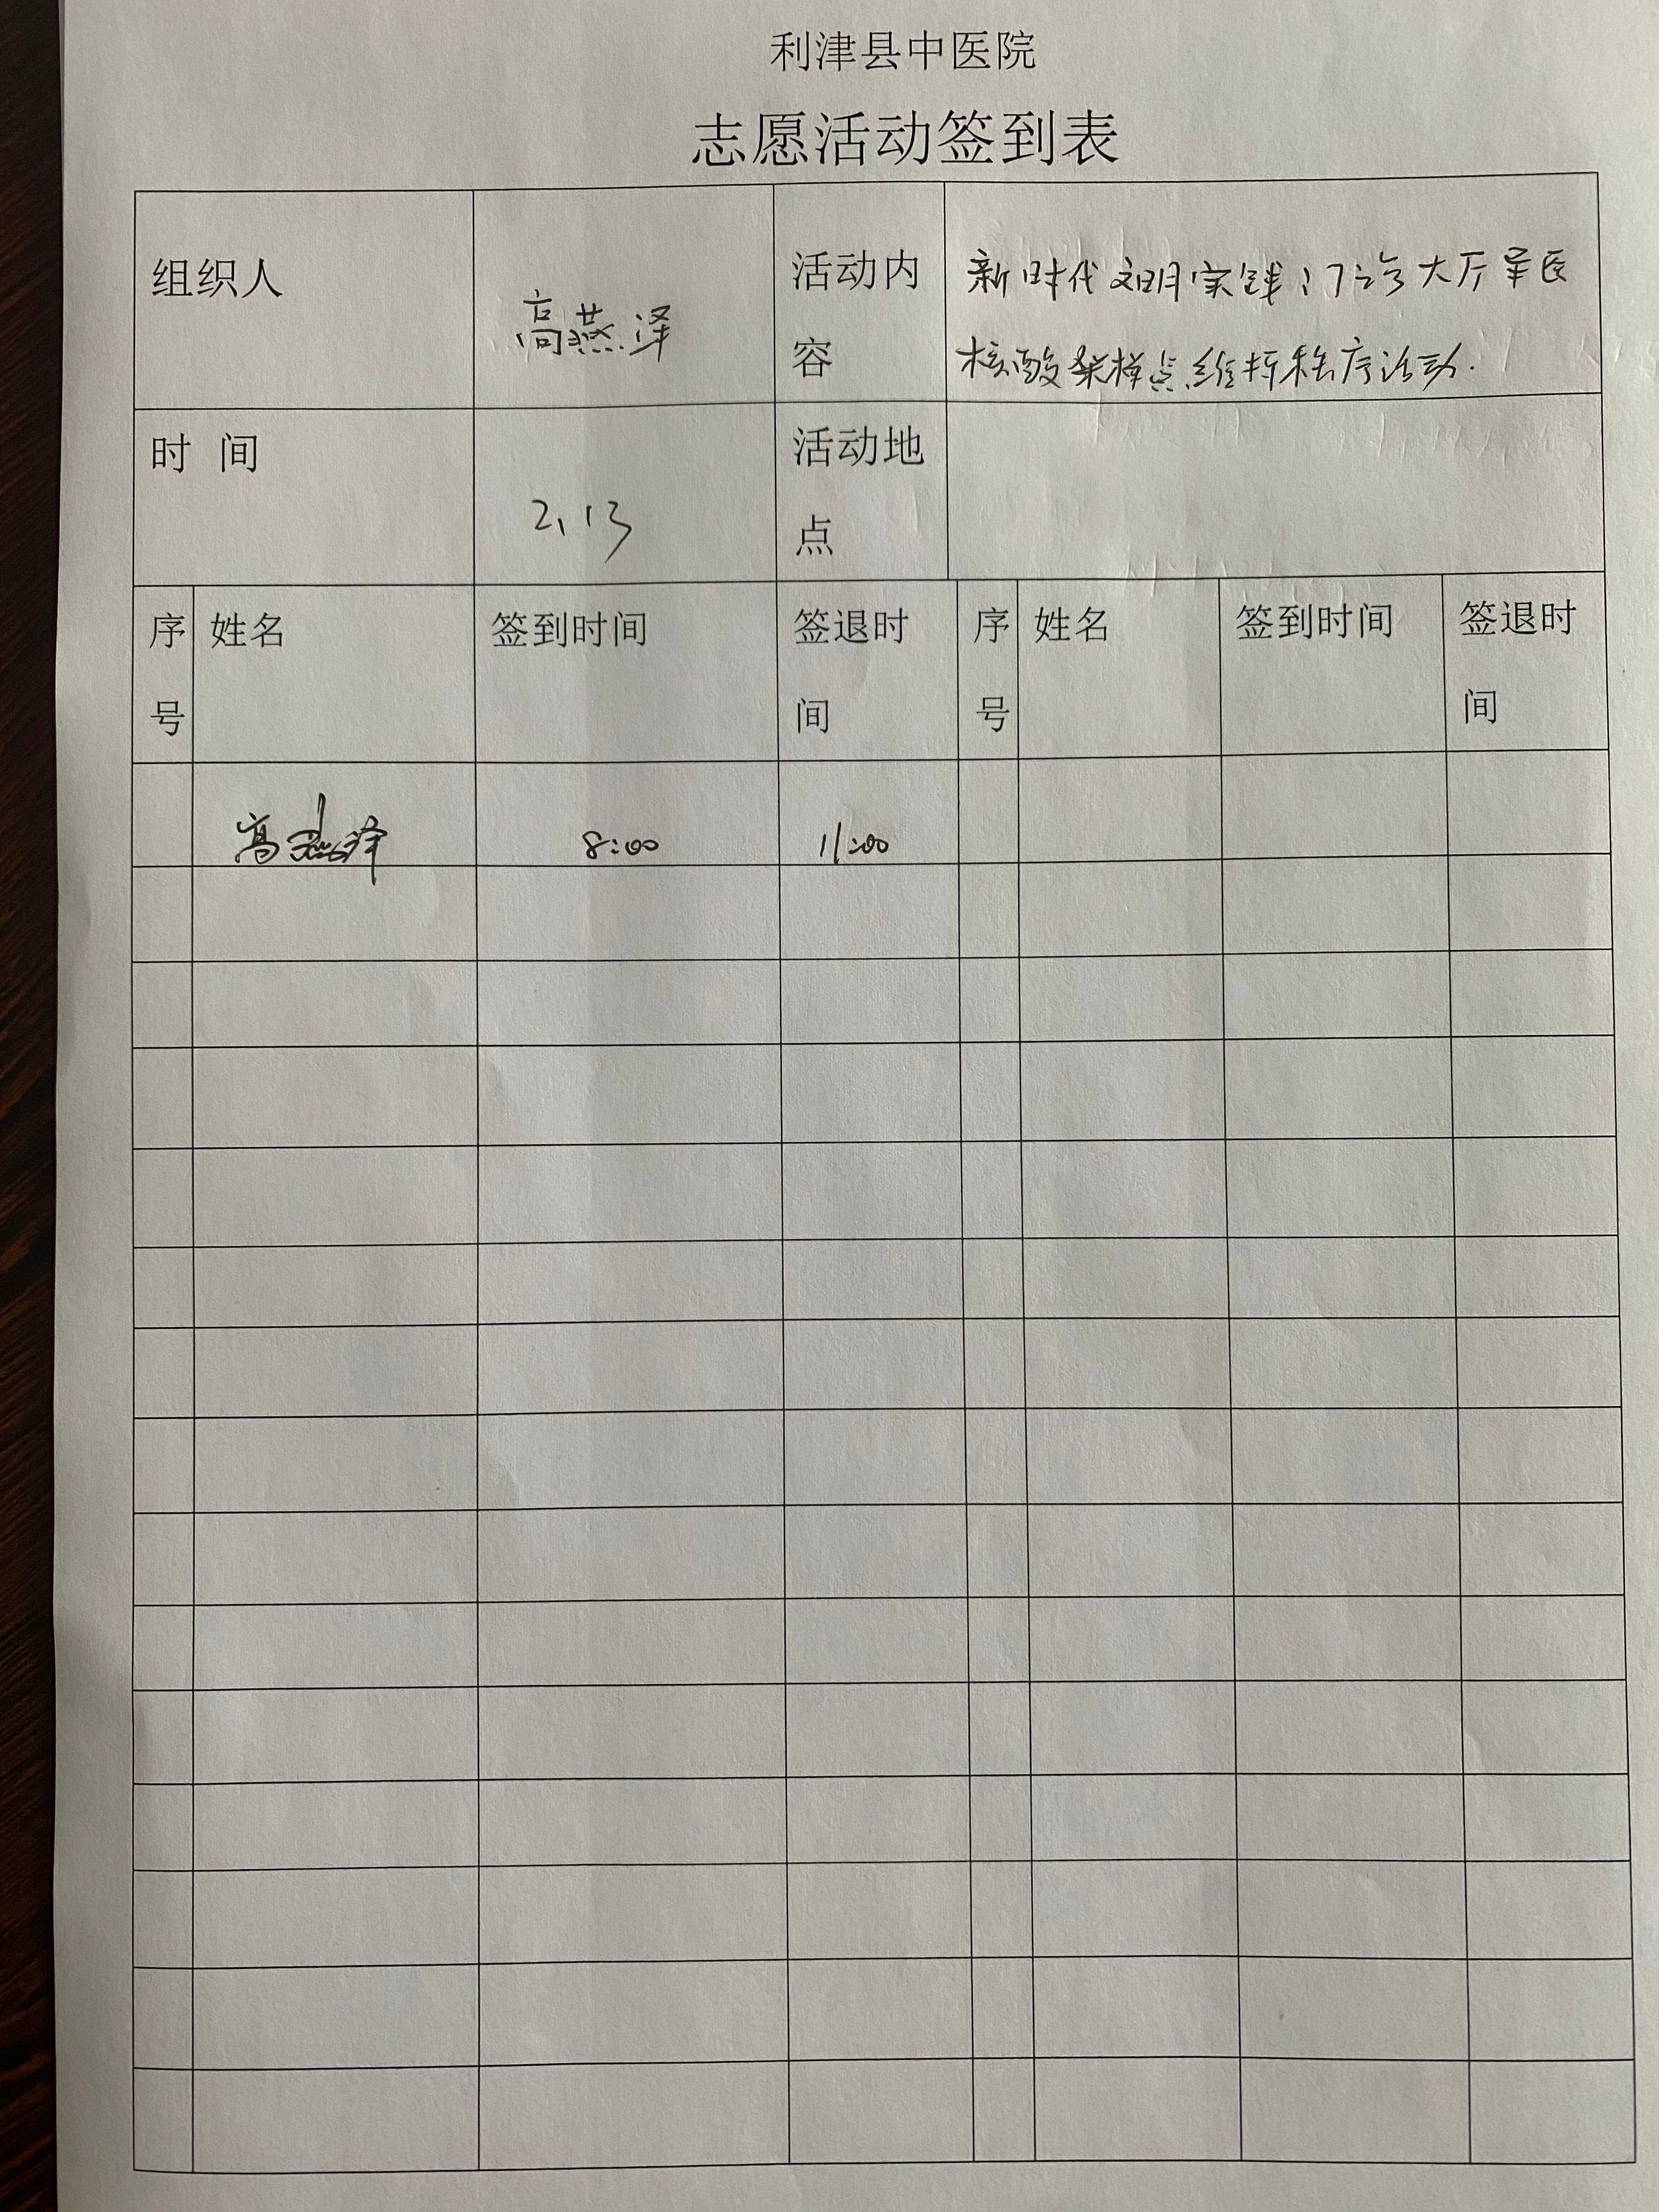 利津县中医院
志愿活动签到表
组织人
高燕泽
活动内
容
新时代文明实践：门诊大厅
核酸采样点维持秩序活动.
时 间
2.13
活动地
点
序
号
姓名
签到时间
签退时
间
序
号
姓名
签到时间
签退时
间
高燕泽
8:00
11:00